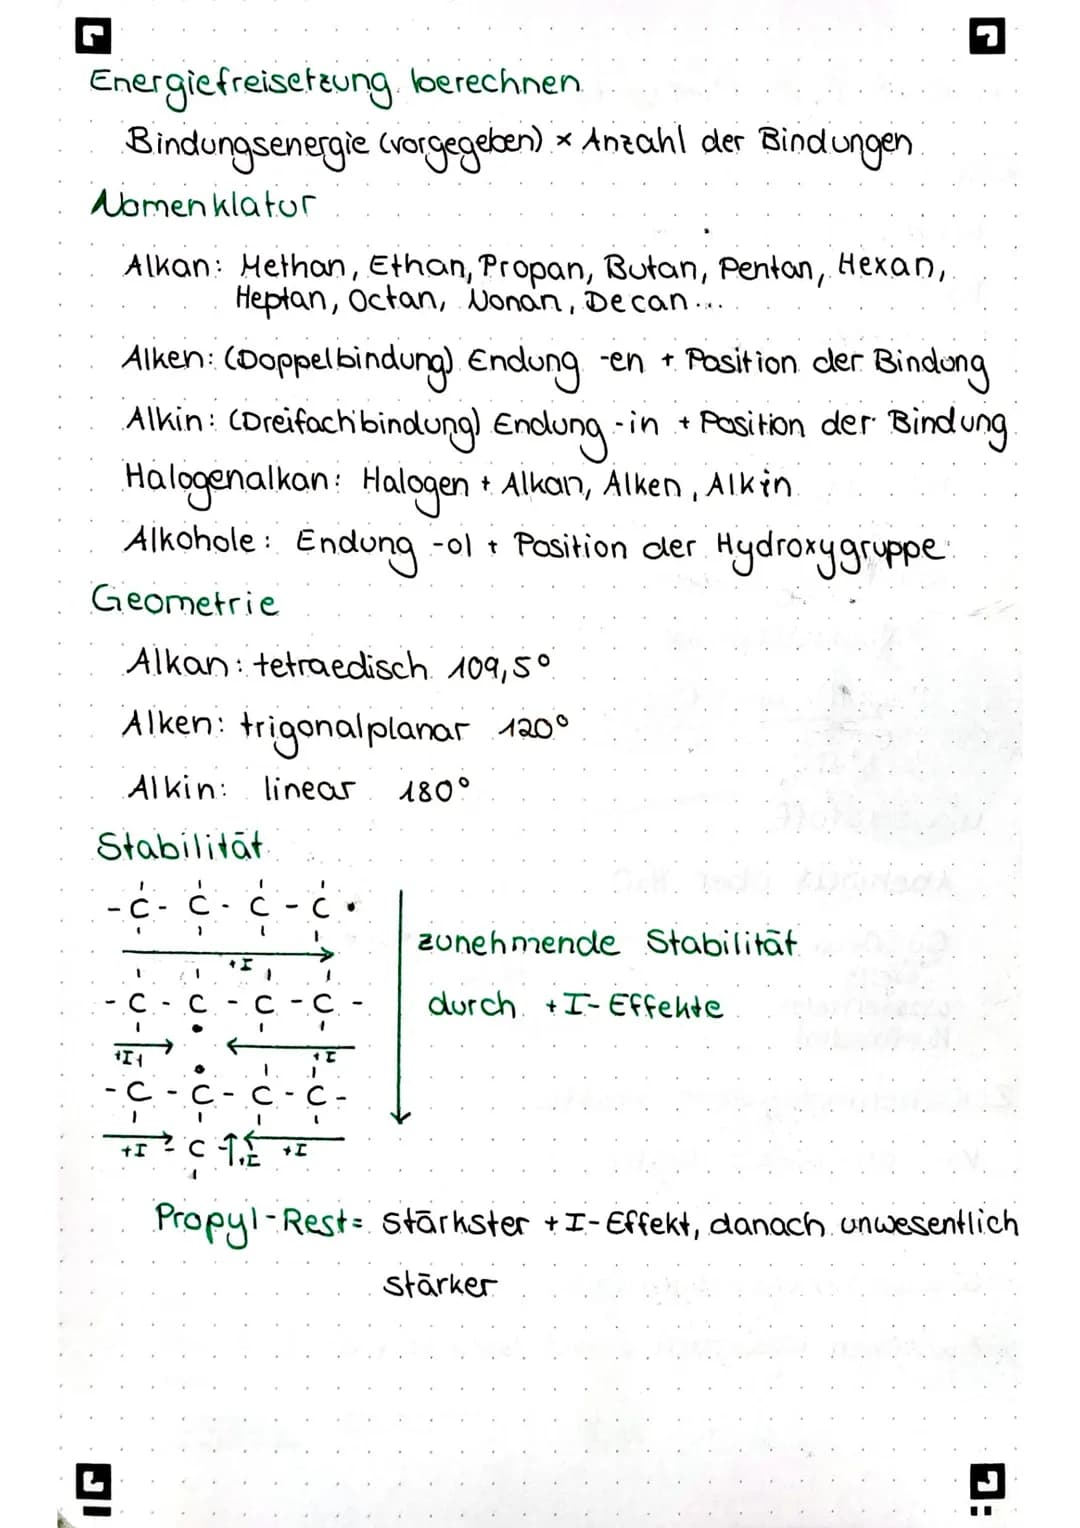 Energiefreisetzung berechnen
Bindungsenergie (vorgegeben) × Anzahl der Bindungen
Nomenklatur
Alkan: Methan, Ethan, Propan, Butan, Pentan, Hexan,
Heptan, Octan, Nonan, Decan...
Alken: (Doppelbindung) Endung -en + Position der Bindung
Alkin: (Dreifachbindung) Endung -in + Position der Bindung
Halogenalkan: Halogen + Alkan, Alken, Alkin
Alkohole: Endung -ol + Position der Hydroxygruppe
Geometrie
Alkan: tetraedisch 109,5°
Alken: trigonalplanar 120°
Alkin: linear 180°
Stabilität
-C-C-C-C•
+I
zunehmende Stabilität
-C-C-C-C-
durch +I-Effekte
+I +I
-C-C-C-C-
+I C +I +I
Propyl-Rest= stärkster +I-Effekt, danach unwesentlich
stärker